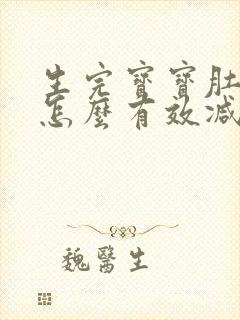 生完寶寶肚
怎麼有效減
魏醫生